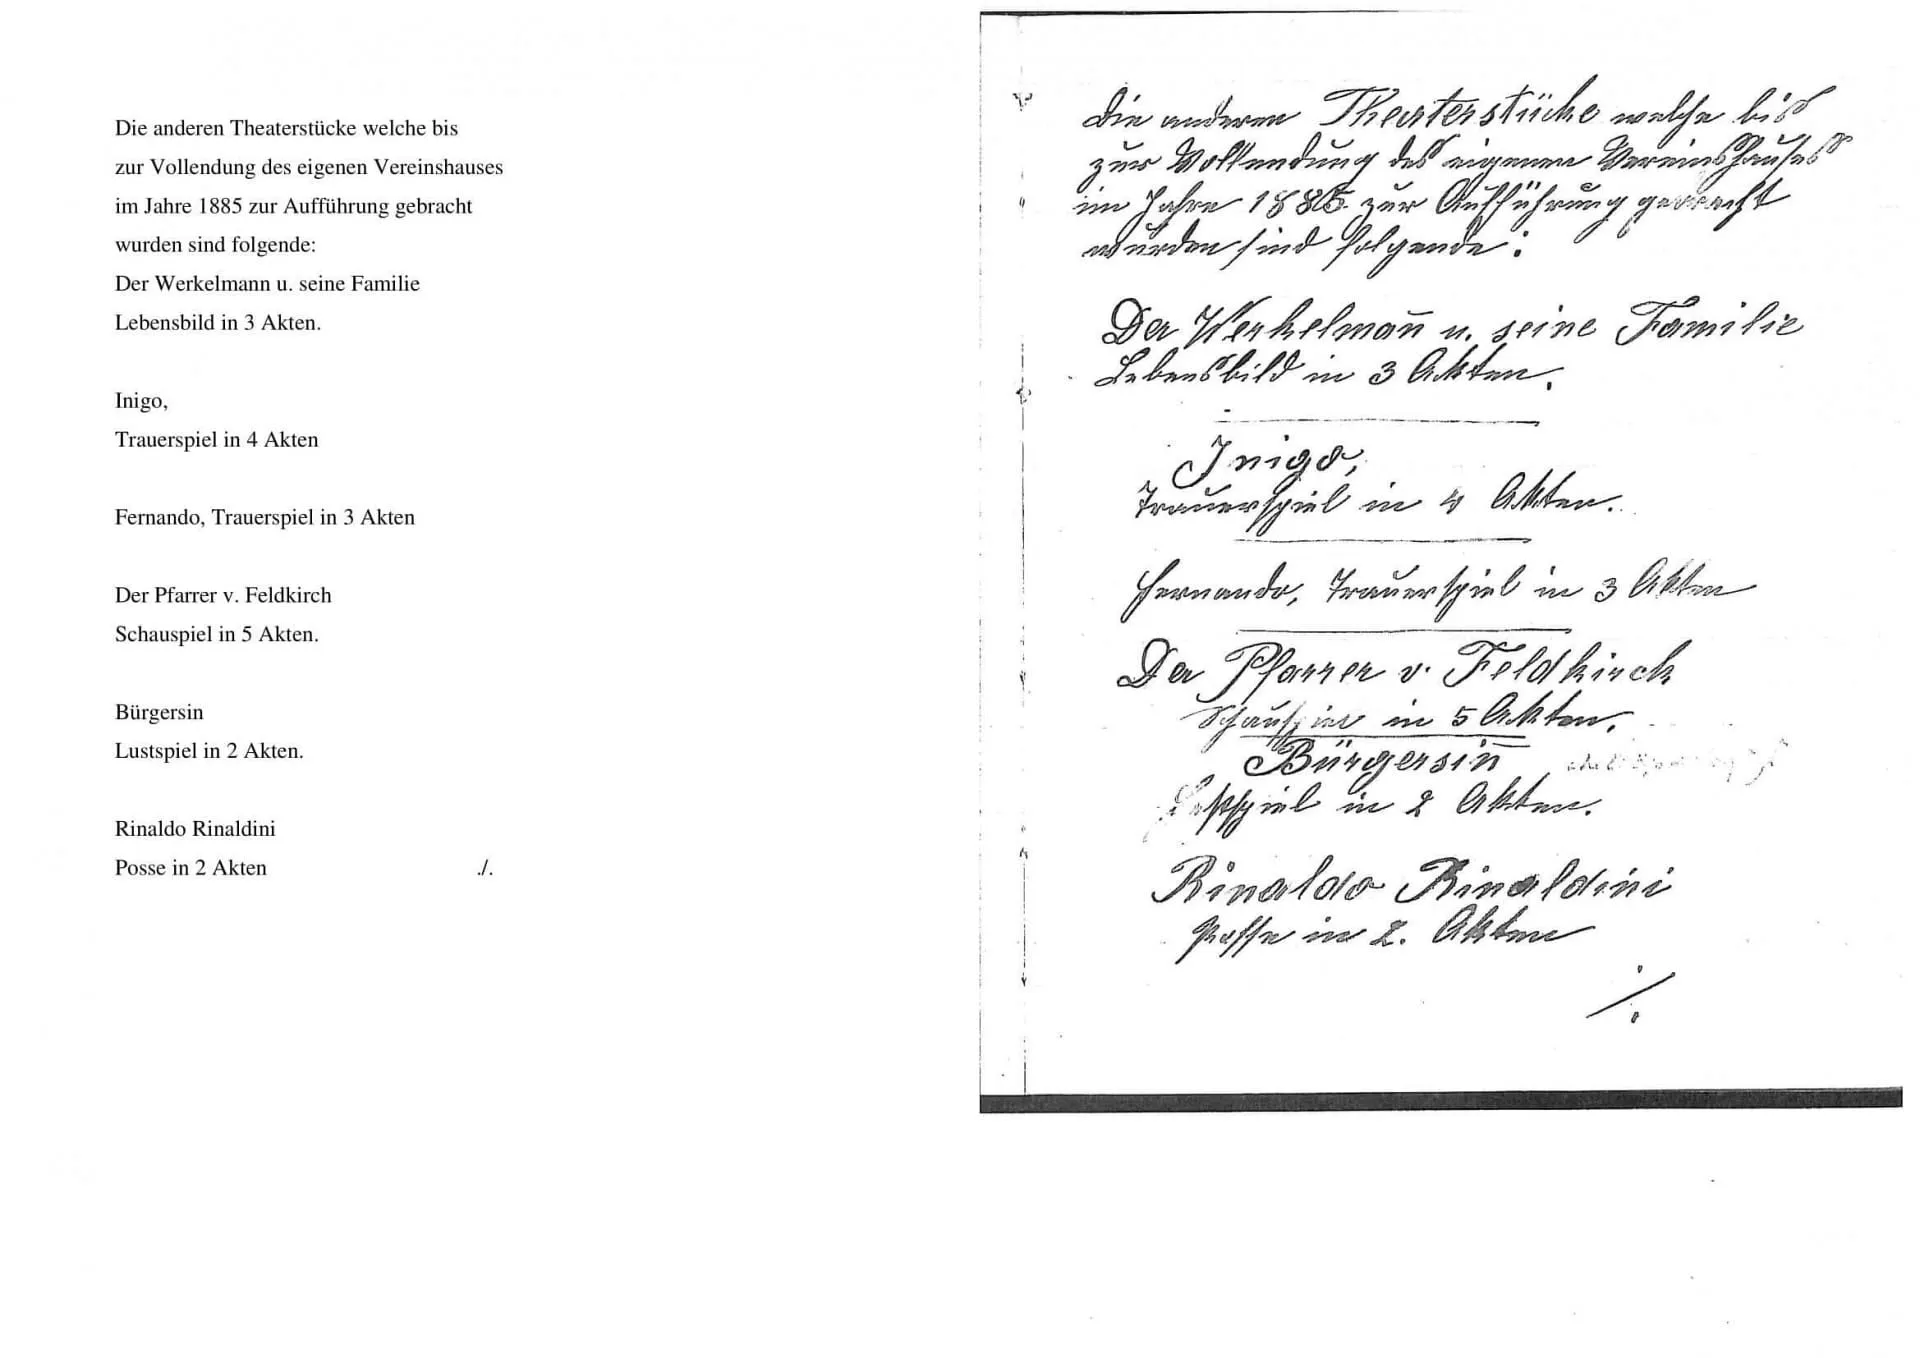 Die anderen Theaterstücke welche bis
zur Vollendung des eigenen Vereinshauses
im Jahre 1885 zur Aufführung gebracht
wurden sind folgende:
Der Werkelmann u. seine Familie
Lebensbild in 3 Akten.
Inigo,
Trauerspiel in 4 Akten
Fernando, Trauerspiel in 3 Akten
Der Pfarrer v. Feldkirch
Schauspiel in 5 Akten.
Bürgersin
Lustspiel in 2 Akten.
Rinaldo Rinaldini
Posse in 2 Akten ./.
Die anderen Theaterstücke welche bis
zur Vollendung des eigenen Vereinshauses
im Jahre 1885 zur Aufführung gebracht
wurden sind folgende:
Der Werkelman̄ u. seine Familie
Lebensbild in 3 Akten.
Inigo,
Trauerspiel in 4 Akten.
Fernando, Trauerspiel in 3 Akten
Der Pfarrer v. Feldkirch
Schauspiel in 5 Akten.
Bürgersin̄
Lustspiel in 2 Akten.
Rinaldo Rinaldini
Posse in 2. Akten
./.